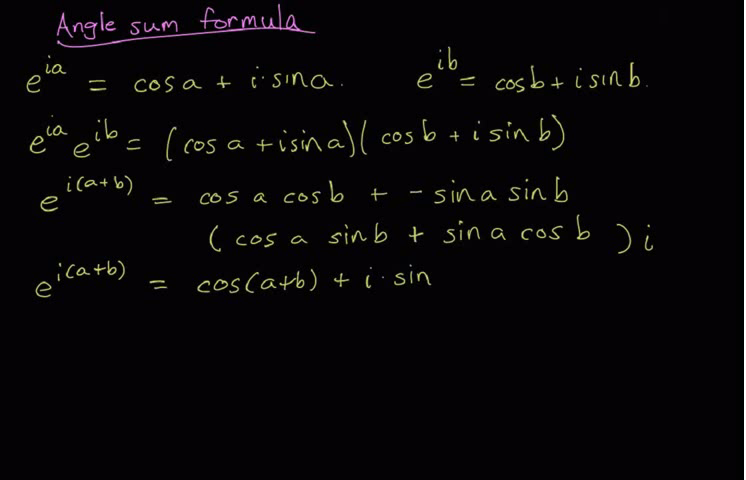 Angle sum formula
e^{ia} = cos a + i·sin a. e^{ib} = cos b + i sin b.
e^{ia} e^{ib} = (cos a + i sin a)(cos b + i sin b)
e^{i(a+b)} = cos a cos b + - sin a sin b
(cos a sin b + sin a cos b) i
e^{i(a+b)} = cos(a+b) + i·sin